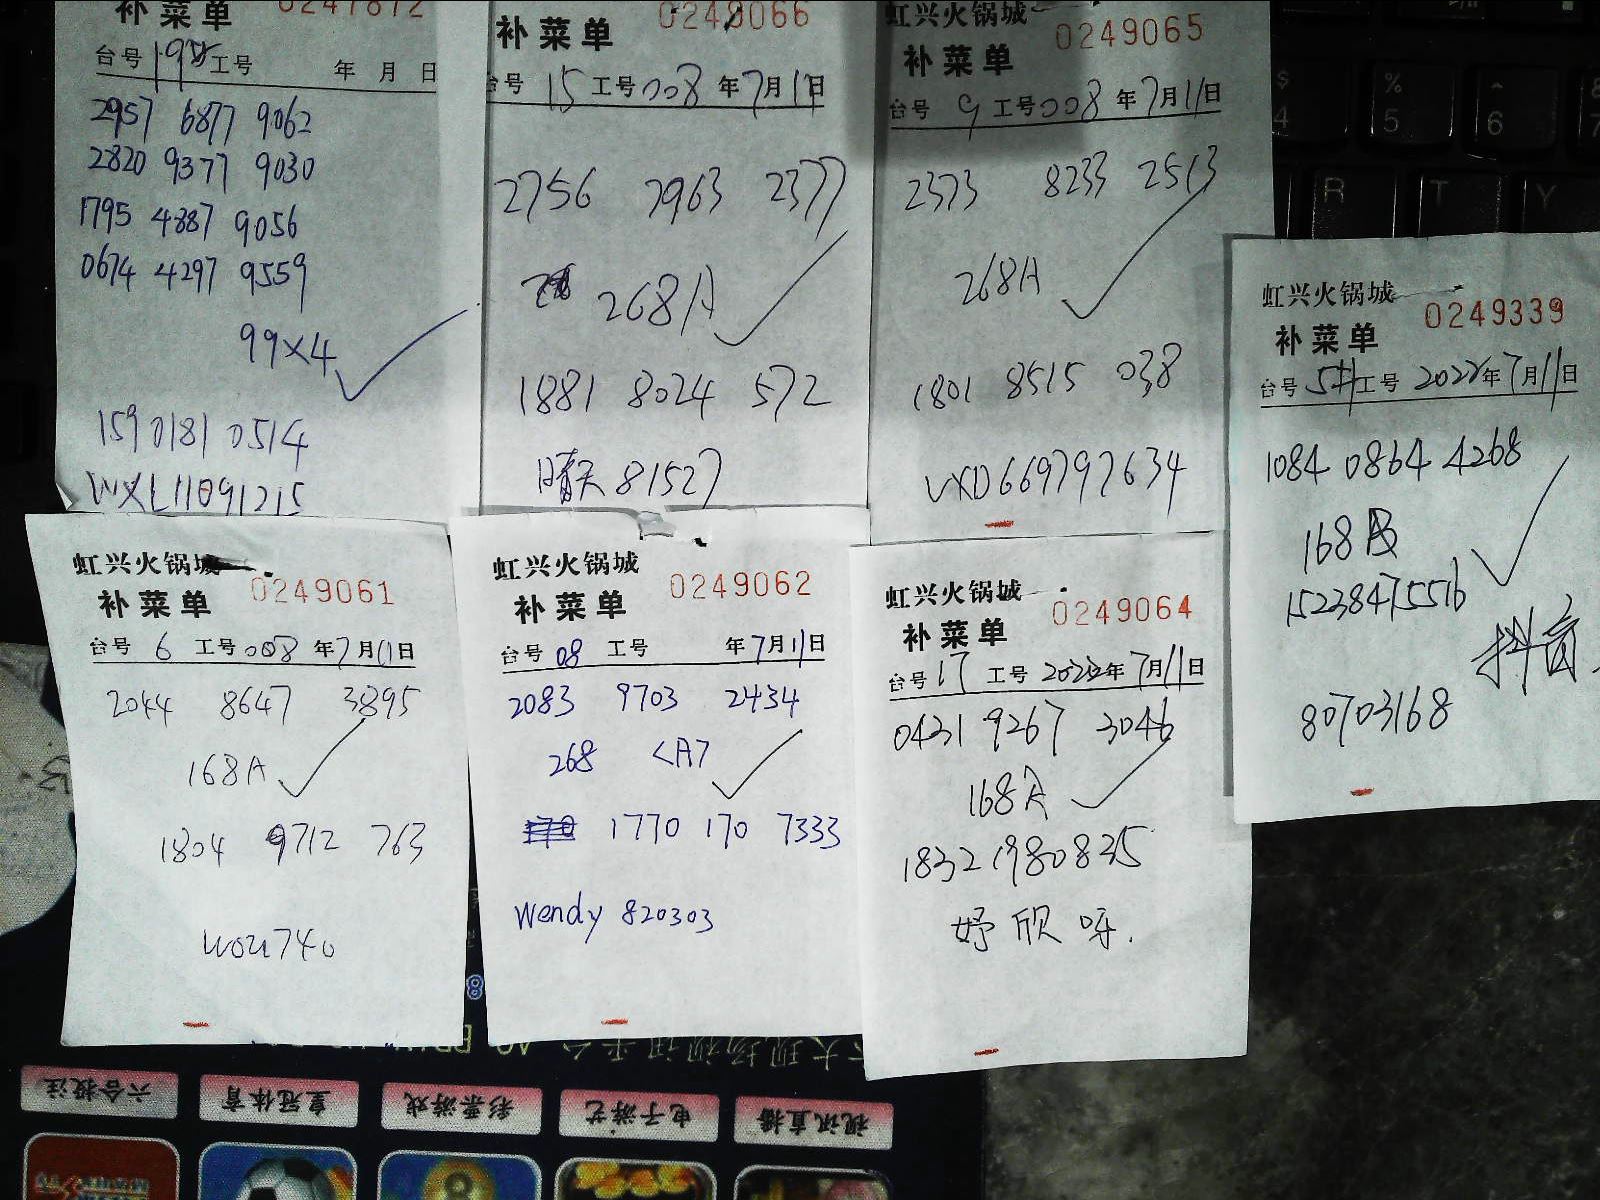 补菜单 0247872
台号 19 工号 年 月 日
2957 6877 9062
2820 9377 9030
1795 4887 9056
0674 4297 9559
99×4
159 0181 0514
WXL11091215
补菜单 0249066
台号 15 工号 008 年 7月11日
2756 7963 2377
268A
1881 8024 572
晴天81527
虹兴火锅城 0249065
补菜单
台号 9 工号 008 年 7月11日
2373 8233 2513
268A
1801 8515 038
VXD669797634
虹兴火锅城 0249339
补菜单
台号 5# 工号 2022年7月11日
1084 0864 4268
168B
15238475516
抖音.
80703168
虹兴火锅城 0249061
补菜单
台号 6 工号 008 年7月11日
2044 8647 3895
168A
1804 9712 763
wou740
虹兴火锅城 0249062
补菜单
台号 08 工号 年7月11日
2083 9703 2434
268 <A7
1770 170 7333
Wendy 820303
虹兴火锅城 0249064
补菜单
台号 17 工号 2022年7月11日
0431 9267 3046
168A
18321980835
妤欣呀.
六合投注 皇冠体育 彩票游戏 电子游艺 视讯直播